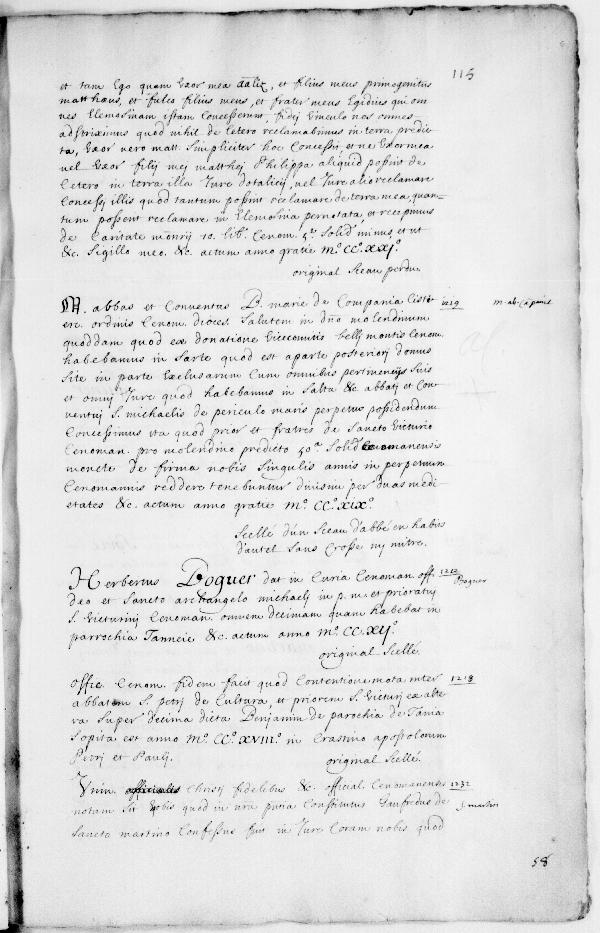 115
et tam Ego quam Uxor mea et filius meus primogenitus
matthæus, et fulco filius meus, et frater meus Egidius qui om
nes Elemosinam istam Concesserunt, fidej Vinculo nos omnes
adstrixinius quod nihil de Cetero reclamabimus in terra predic
ta, Uxor vero matt. simpliciter hoc Concessit, et ne Uxor mea
vel Uxor filij mej matthej Philippa aliquid possint de
Cetero in terra illa Jure dotalicij, vel Jure alio reclamare
Concessj illis quod tantum possint reclamare de terra mea, quan-
tum possent reclamare in Elemosina pernotata, et recepimus
de Caritate 10. lib. Cenom. 5. Solid minus et ut
&c. Sigillo meo. &c. actum anno gratie Mº. CCº. XXJº.
original Sceau perdu.
M. abbas et Conventus B. marie de Compania Cister
1219
m. ab. Ca panie
cien. ordinis Cenom. dioces. Salutem in dño molendinum
quoddam quod ex donatione Vicecomitis bellj montis Cenom.
habebamus in Sarte quod est aparte posteriorj domus
Site in parte Exclusarum Cum omnibus pertinencijs Suis
et omnj Jure quod habebamus in Salta &c. abbatj et Con
ventuj S. michaelis de periculo maris perpetuo possidendum
Concessimus ita quod prior et fratres de Sancto Victurio
Cenoman. pro molendino predicto 50. Solid Cenomanensis
monete de firma nobis Singulis annis in perpetuum
Cenomannis reddere tenebuntur divisim per duas medi
etates &c. actum anno gratie Mº. CCº. XIXº.
Scellé d'un Sceau d'abbé en habits
d'autel Sans Crosse ny mitre.
Herbertus Boguer dat in Curia Cenoman. off.
1212
Boguer
deo et Sancto archangelo michaelj in p. m. et prioratuj
S. Victurij Cenoman. omnem decimam quam habebat in
parrochia Tanneie &c. actum anno Mº. CC. XIJº.
original Scellé.
Offic. Cenom. fidem facit quod Contentione mota inter
1218
abbatem S. petrj de Cultura, et priorem S. Victurj ex alte
ra Super decima dicta Benjamin de parochia de Tania
Sopita est anno Mº. CCº. XVIIIº. in Crastino apostolorum
Petrj et Paulj.
original Scellé.
Univ. Christj fidelibus &c. official. Cenomanensis
1232
notum Sit Vobis quod in nra Constitutus Gaufredus de
S. martin
Sancto martino Confessus fuit in Jure Coram nobis quod
58